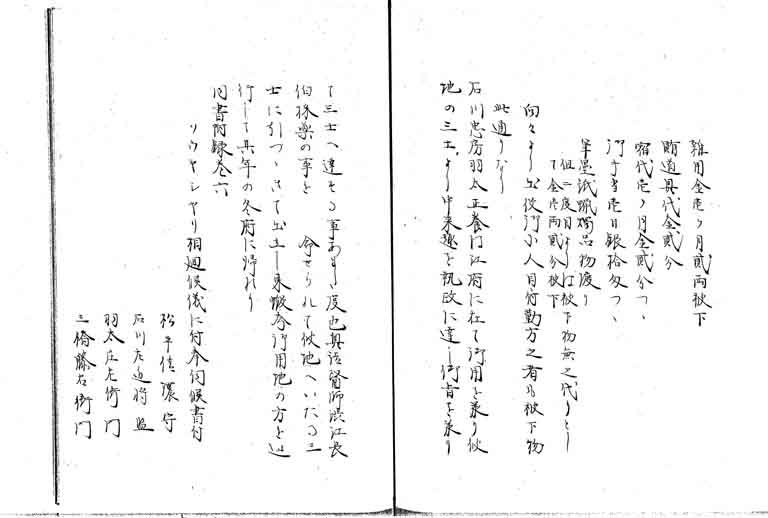 雑用金壱ヶ月貳両被下
賄道具代金貳分
宿代壱ヶ月金貳分つゝ
河手当壱日銀拾匁つゝ
筆墨紙蝋燭品物渡り
但二度目より被下物無之代りとし
て金壱両貳分被下
向々より出役河小人目付勤方之者は被下物
此通りなり
石川忠房羽太正養門江府に在て河用を承り彼
地の三士より申来趣を執政に達し御旨を承り
て三士へ達する事あり度也奥詰醫師渋江長
伯採薬の事を 命せられて彼地へいたる三
士に引つゝきて出立し東蝦夷河用地の方を巡
行して其年の冬府に帰れり
同書附録巻六
ソウヤシヤリ相廻候儀に付奉伺候書付
松平信濃守
石川左近将監
羽太庄左衛門
三橋藤右衛門